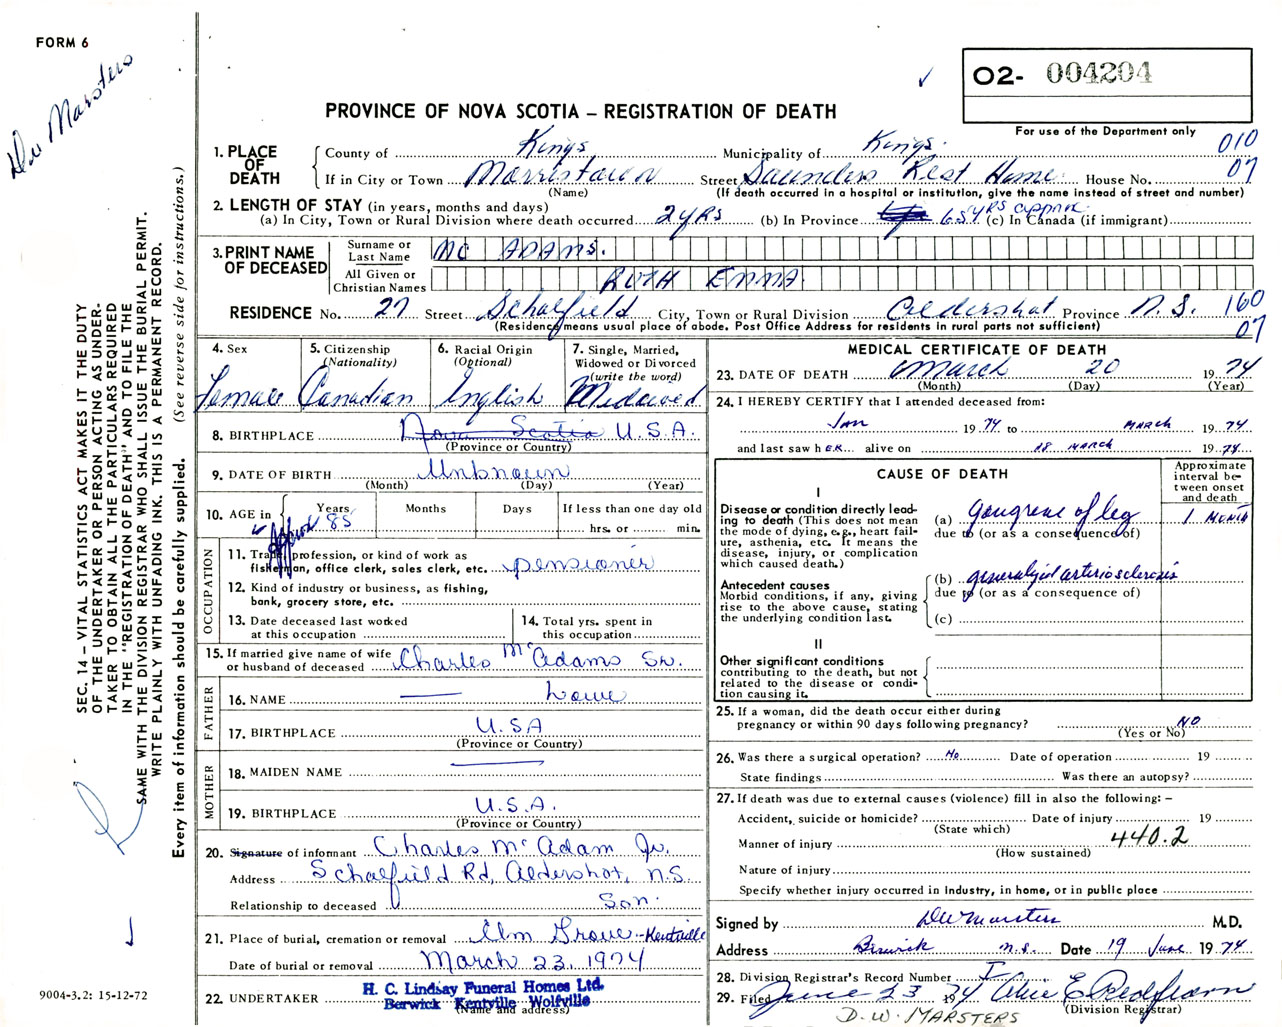 FORM 6
Dw Marsters
O2- 004204
PROVINCE OF NOVA SCOTIA – REGISTRATION OF DEATH
For use of the Department only
1. PLACE OF DEATH
County of Kings Municipality of Kings 010
If in City or Town Morristown Street Saunders Rest Home House No. 07
(Name) (If death occurred in a hospital or institution, give the name instead of street and number)
2. LENGTH OF STAY (in years, months and days)
(a) In City, Town or Rural Division where death occurred 2 yrs (b) In Province 65 yrs approx. (c) In Canada (if immigrant)
3. PRINT NAME OF DECEASED
Surname or Last Name Mc ADAMS.
All Given or Christian Names RUTH EMMA.
RESIDENCE No. 27 Street Schalfield City, Town or Rural Division Aldershot Province N.S. 160
(Residence means usual place of abode. Post Office Address for residents in rural parts not sufficient) 07
SEC. 14 – VITAL STATISTICS ACT MAKES IT THE DUTY
OF THE UNDERTAKER OR PERSON ACTING AS UNDER-
TAKER TO OBTAIN ALL THE PARTICULARS REQUIRED
IN THE "REGISTRATION OF DEATH" AND TO FILE THE
SAME WITH THE DIVISION REGISTRAR WHO SHALL ISSUE THE BURIAL PERMIT.
WRITE PLAINLY WITH UNFADING INK. THIS IS A PERMANENT RECORD.
Every item of information should be carefully supplied. (See reverse side for instructions.)
4. Sex
Female
5. Citizenship
(Nationality)
Canadian
6. Racial Origin
(Optional)
English
7. Single, Married,
Widowed or Divorced
(write the word)
Widowed
8. BIRTHPLACE Nova Scotia U.S.A.
(Province or Country)
9. DATE OF BIRTH Unknown
(Month) (Day) (Year)
10. AGE in Years Months Days If less than one day old
Approx 85 hrs. or min.
OCCUPATION
11. Trade, profession, or kind of work as
fisherman, office clerk, sales clerk, etc. pensioner
12. Kind of industry or business, as fishing,
bank, grocery store, etc.
13. Date deceased last worked
at this occupation
14. Total yrs. spent in
this occupation
15. If married give name of wife
or husband of deceased Charles Mc Adams Sr.
FATHER
16. NAME — Lowe
17. BIRTHPLACE U.S.A
(Province or Country)
MOTHER
18. MAIDEN NAME —
19. BIRTHPLACE U.S.A.
(Province or Country)
20. Signature of informant Charles Mc Adam Jr.
Address Schalfield Rd, Aldershot, N.S.
Relationship to deceased Son.
21. Place of burial, cremation or removal Elm Grove - Kentville
Date of burial or removal March 23, 1974
22. UNDERTAKER H. C. Lindsay Funeral Homes Ltd.
Berwick Kentville Wolfville
(Name and address)
9004-3.2: 15-12-72
MEDICAL CERTIFICATE OF DEATH
23. DATE OF DEATH March 20 1974
(Month) (Day) (Year)
24. I HEREBY CERTIFY that I attended deceased from:
Jan 1974 to March 1974
and last saw her alive on 18 March 1974
CAUSE OF DEATH
Approximate
interval be-
tween onset
and death
I
Disease or condition directly lead-
ing to death (This does not mean
the mode of dying, e.g., heart fail-
ure, asthenia, etc. It means the
disease, injury, or complication
which caused death.)
(a) gangrene of leg 1 month
due to (or as a consequence of)
Antecedent causes
Morbid conditions, if any, giving
rise to the above cause, stating
the underlying condition last.
(b) generalized arteriosclerosis
due to (or as a consequence of)
(c)
II
Other significant conditions
contributing to the death, but not
related to the disease or condi-
tion causing it.
25. If a woman, did the death occur either during
pregnancy or within 90 days following pregnancy? NO
(Yes or No)
26. Was there a surgical operation? No Date of operation 19
State findings Was there an autopsy?
27. If death was due to external causes (violence) fill in also the following: –
Accident, suicide or homicide? Date of injury 19
(State which)
Manner of injury 440.2
(How sustained)
Nature of injury
Specify whether injury occurred in industry, in home, or in public place
Signed by DW Marsters M.D.
Address Berwick N.S. Date 19 June 1974
28. Division Registrar's Record Number I
29. Filed June 23 1974 Alice E Redfearn
(Division Registrar)
D.W. MARSTERS